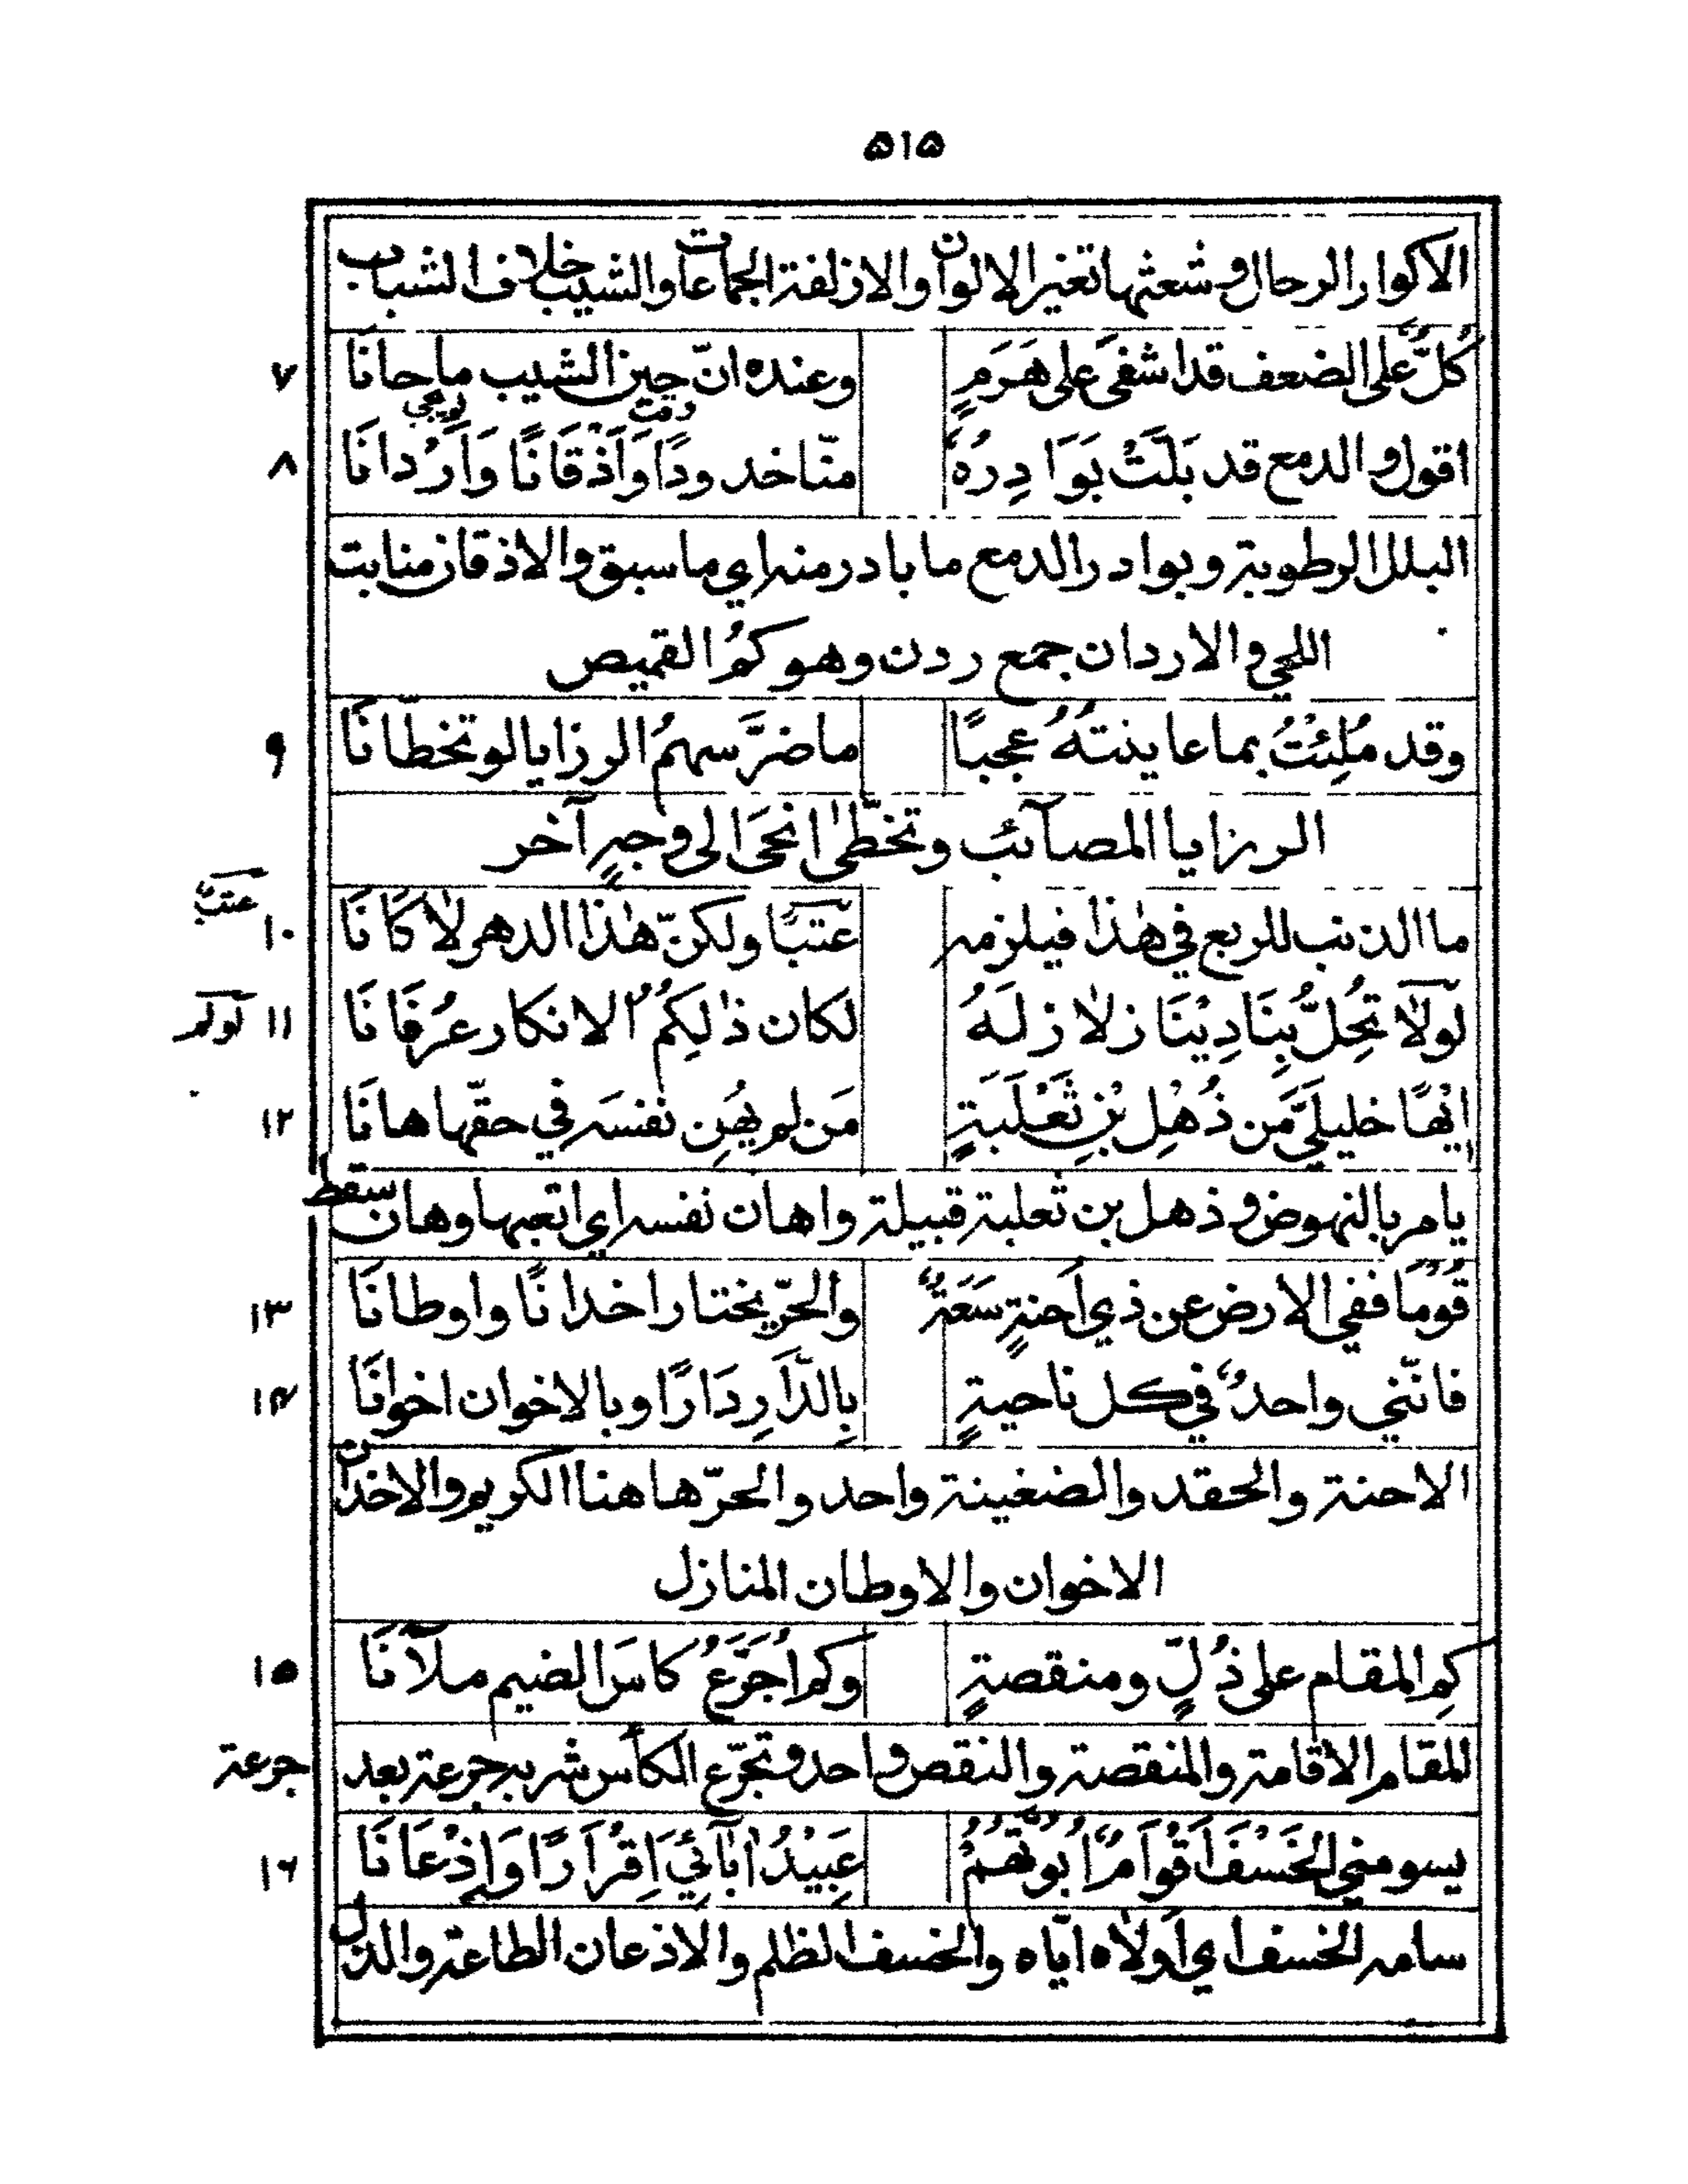 ٥١٥
الاكوار الرحال وشعثها تغير الالوان والازلفة الجماعات والشيب خلاف الشباب
كُلٌّ على الضعف قد اشفى على هَرَمٍ وعنده انّ حين الشيب ما حانَا ٧
اقول والدمع قد بَلَّتْ بَوَادِرُهُ منّا خدودًا وَاَذْقَانًا وَاَرْدانَا ٨
البلل الرطوبة وبوادر الدمع ما بادر منه اي ما سبق والاذقان منابت
اللحي والاردان جمع ردن وهو كمُ القميص
وقد مُلِئْتُ بما عاينتُهُ عجبًا ما ضرَّ سهمُ الرزايا لو تخطّانَا ٩
الرزايا المصآئب وتخطّىٰ انحَى الى وجهٍ آخر
ما الذنب للربع في هٰذا فيلزمه عَتبًا ولكنّ هٰذا الدهر لا كَانَا ١٠ عتبٌ
لَولَا تَحِلُّ بِنَادِيْنَا زلازلَهُ لكان ذٰلِكُمُ الانكار عُرْفَانَا ١١ لو لم
اِيْهًا خليلَيَّ مَن ذُهْلِ بْنِ ثَعْلَبَةٍ مَن لم يُهِن نفسَه في حقّها هانَا ١٢
يامر بالنهوض وذهل بن ثعلبة قبيلة واهان نفسه اي اتعبها وهان سقط
قُومَا ففي الارض عن ذي اَحنةٍ سَعَةٌ والحرّ يختار اخدانًا واوطانَا ١٣
فانّني واحدٌ في كل ناحيةٍ بِالدَّارِ دَارًا وبالاخوان اخوانَا ١٤
الاحنة والحقد والضغينة واحد والحرّ هاهنا الكريم والاخدان
الاخوان والاوطان المنازل
كمِ المقام على ذُلٍّ ومنقصةٍ وكم اُجَرَّعُ كاسَ الضيم ملآنَا ١٥
المقام الاقامة والمنقصة والنقص واحد وتجرّع الكأس شربه جرعة بعد جرعة
يسومني الخَسْفَ اَقْوَامٌ اُبُوتُهُمُ عَبِيْدُ اٰبآئِي اِقْرَارًا وَاِذْعَانَا ١٦
سامه الخسف اي اولاه ايّاه والخسف الظلم والاذعان الطاعة والذل